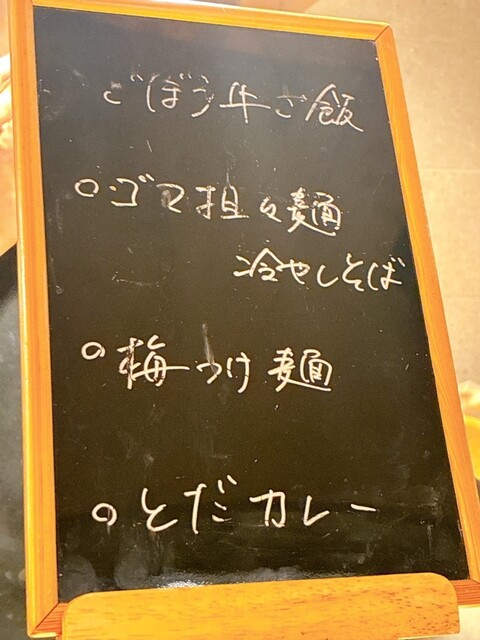 ごぼう牛ご飯
○ゴマ担々麺
冷やしそば
○梅つけ麺
○とだカレー